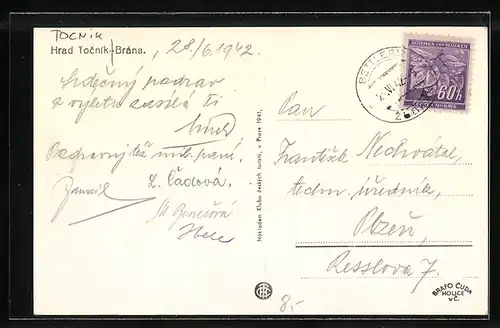 TOČNÍK
Hrad Točník-Brána.
28/6. 1942.
Srdečný pozdrav
z výletu zasílá Ti
Pozdravuj též mil. paní.
L. Čadová.
M. Benešová
Nákladem Klubu českých turistů, v Praze 1941.
BÖHMEN UND MÄHREN
60h
ČECHY A MORAVA
Pan
František Nechvátal,
techn. úředník,
Plzeň,
Resslova 7.
8,-
GRAFO ČUDA
HOLICE
V Č.